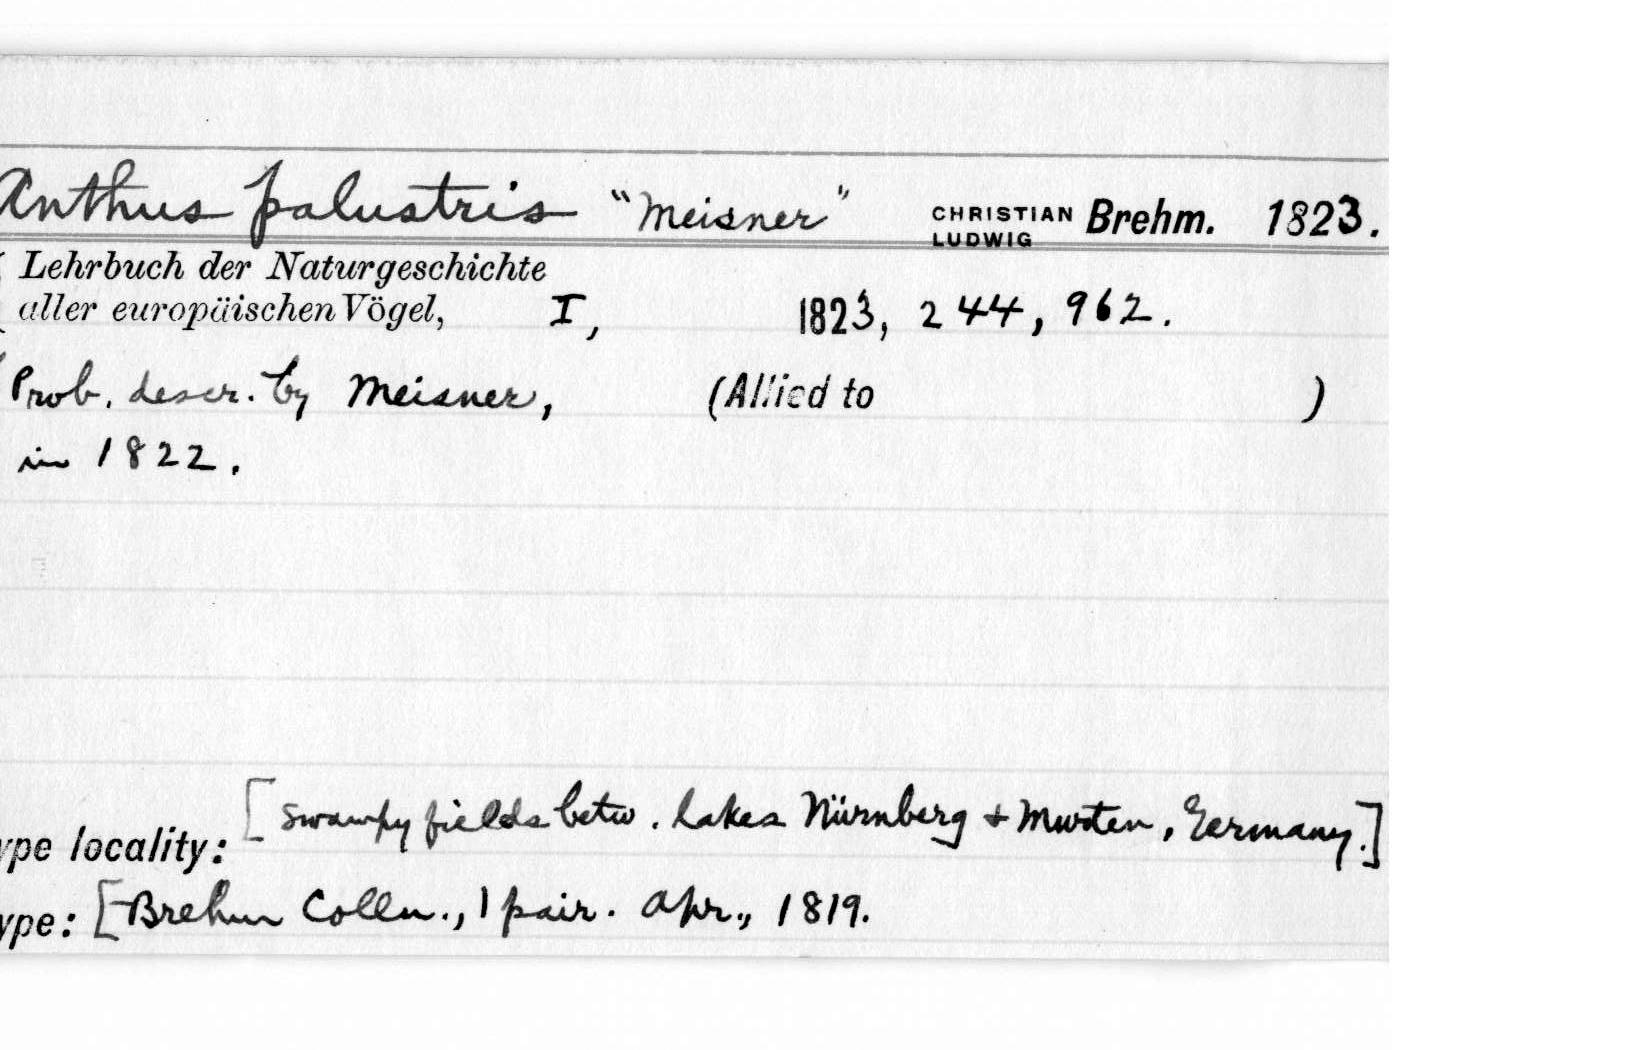 Anthus palustris "Meisner" CHRISTIAN LUDWIG Brehm. 1823.
Lehrbuch der Naturgeschichte
aller europäischen Vögel, I, 1823, 244, 962.
Prob. descr. by Meisner, (Allied to )
in 1822.
ype locality: [swampy fields betw. lakes Nürnberg + Murten, Germany.]
ype: [Brehm Colln., 1 pair. Apr., 1819.